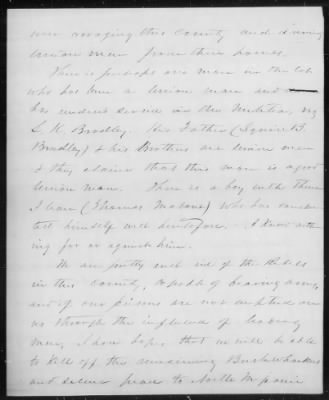 were ravaging this county and driving
Union men from their homes.
There is perhaps one man in the lot
who has been a Union man and
has rendered service in the Militia, viz
L. K. Bradley. His Father (Squire B.
Bradley) & his Brothers are Union men
& they claim that this man is a good
Union man. There is a boy with them
I learn (Thomas Malone) who has conduc-
ted himself well heretofore. I know noth-
ing for or against him.
We are pretty well rid of the Rebels
in this county, capable of bearing arms,
and if our prisons are not emptied on
us through the influence of leading
men, I have hope that we will be able
to kill off the remaining Bushwhackers
and secure peace to North Missouri